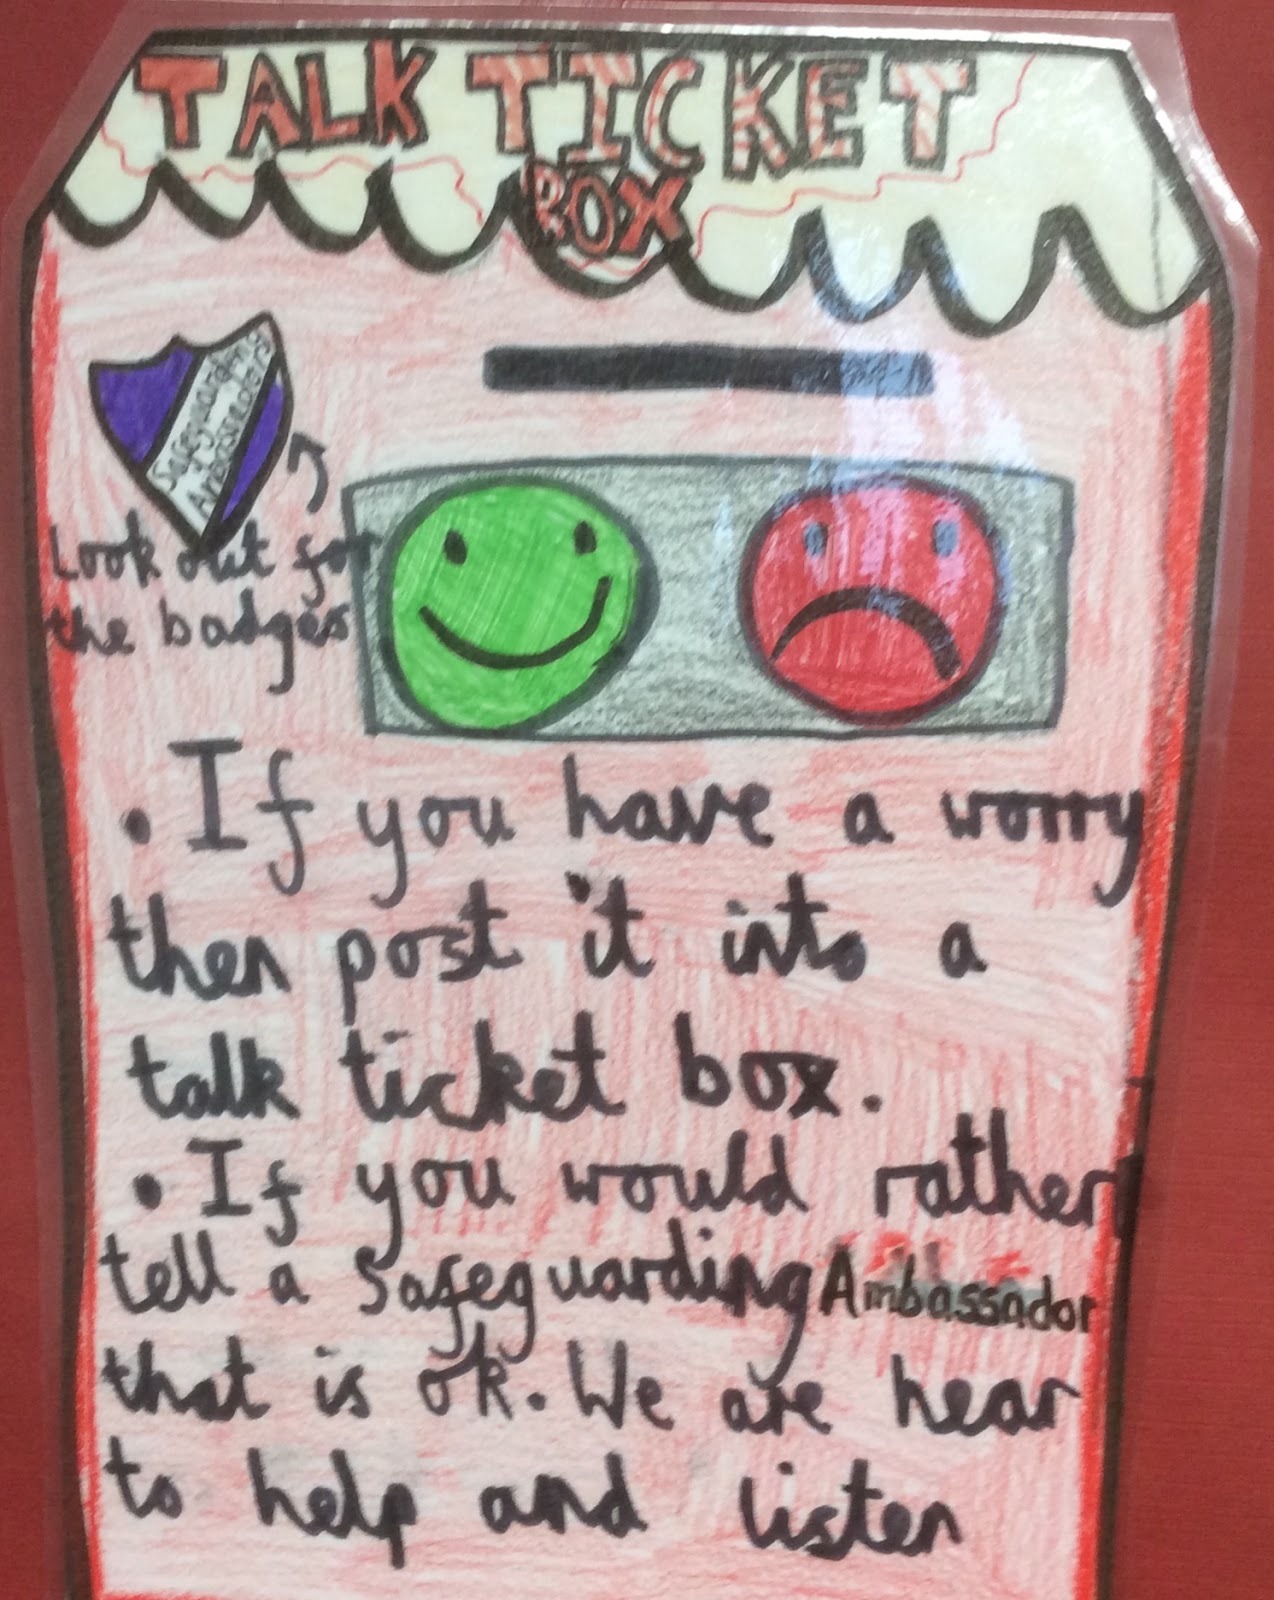 TALK TICKET
BOX
Safeguarding
Ambassadors
Look out for
the badges
• If you have a worry
then post it into a
talk ticket box.
• If you would rather
tell a Safeguarding Ambassador
that is ok. We are hear
to help and listen